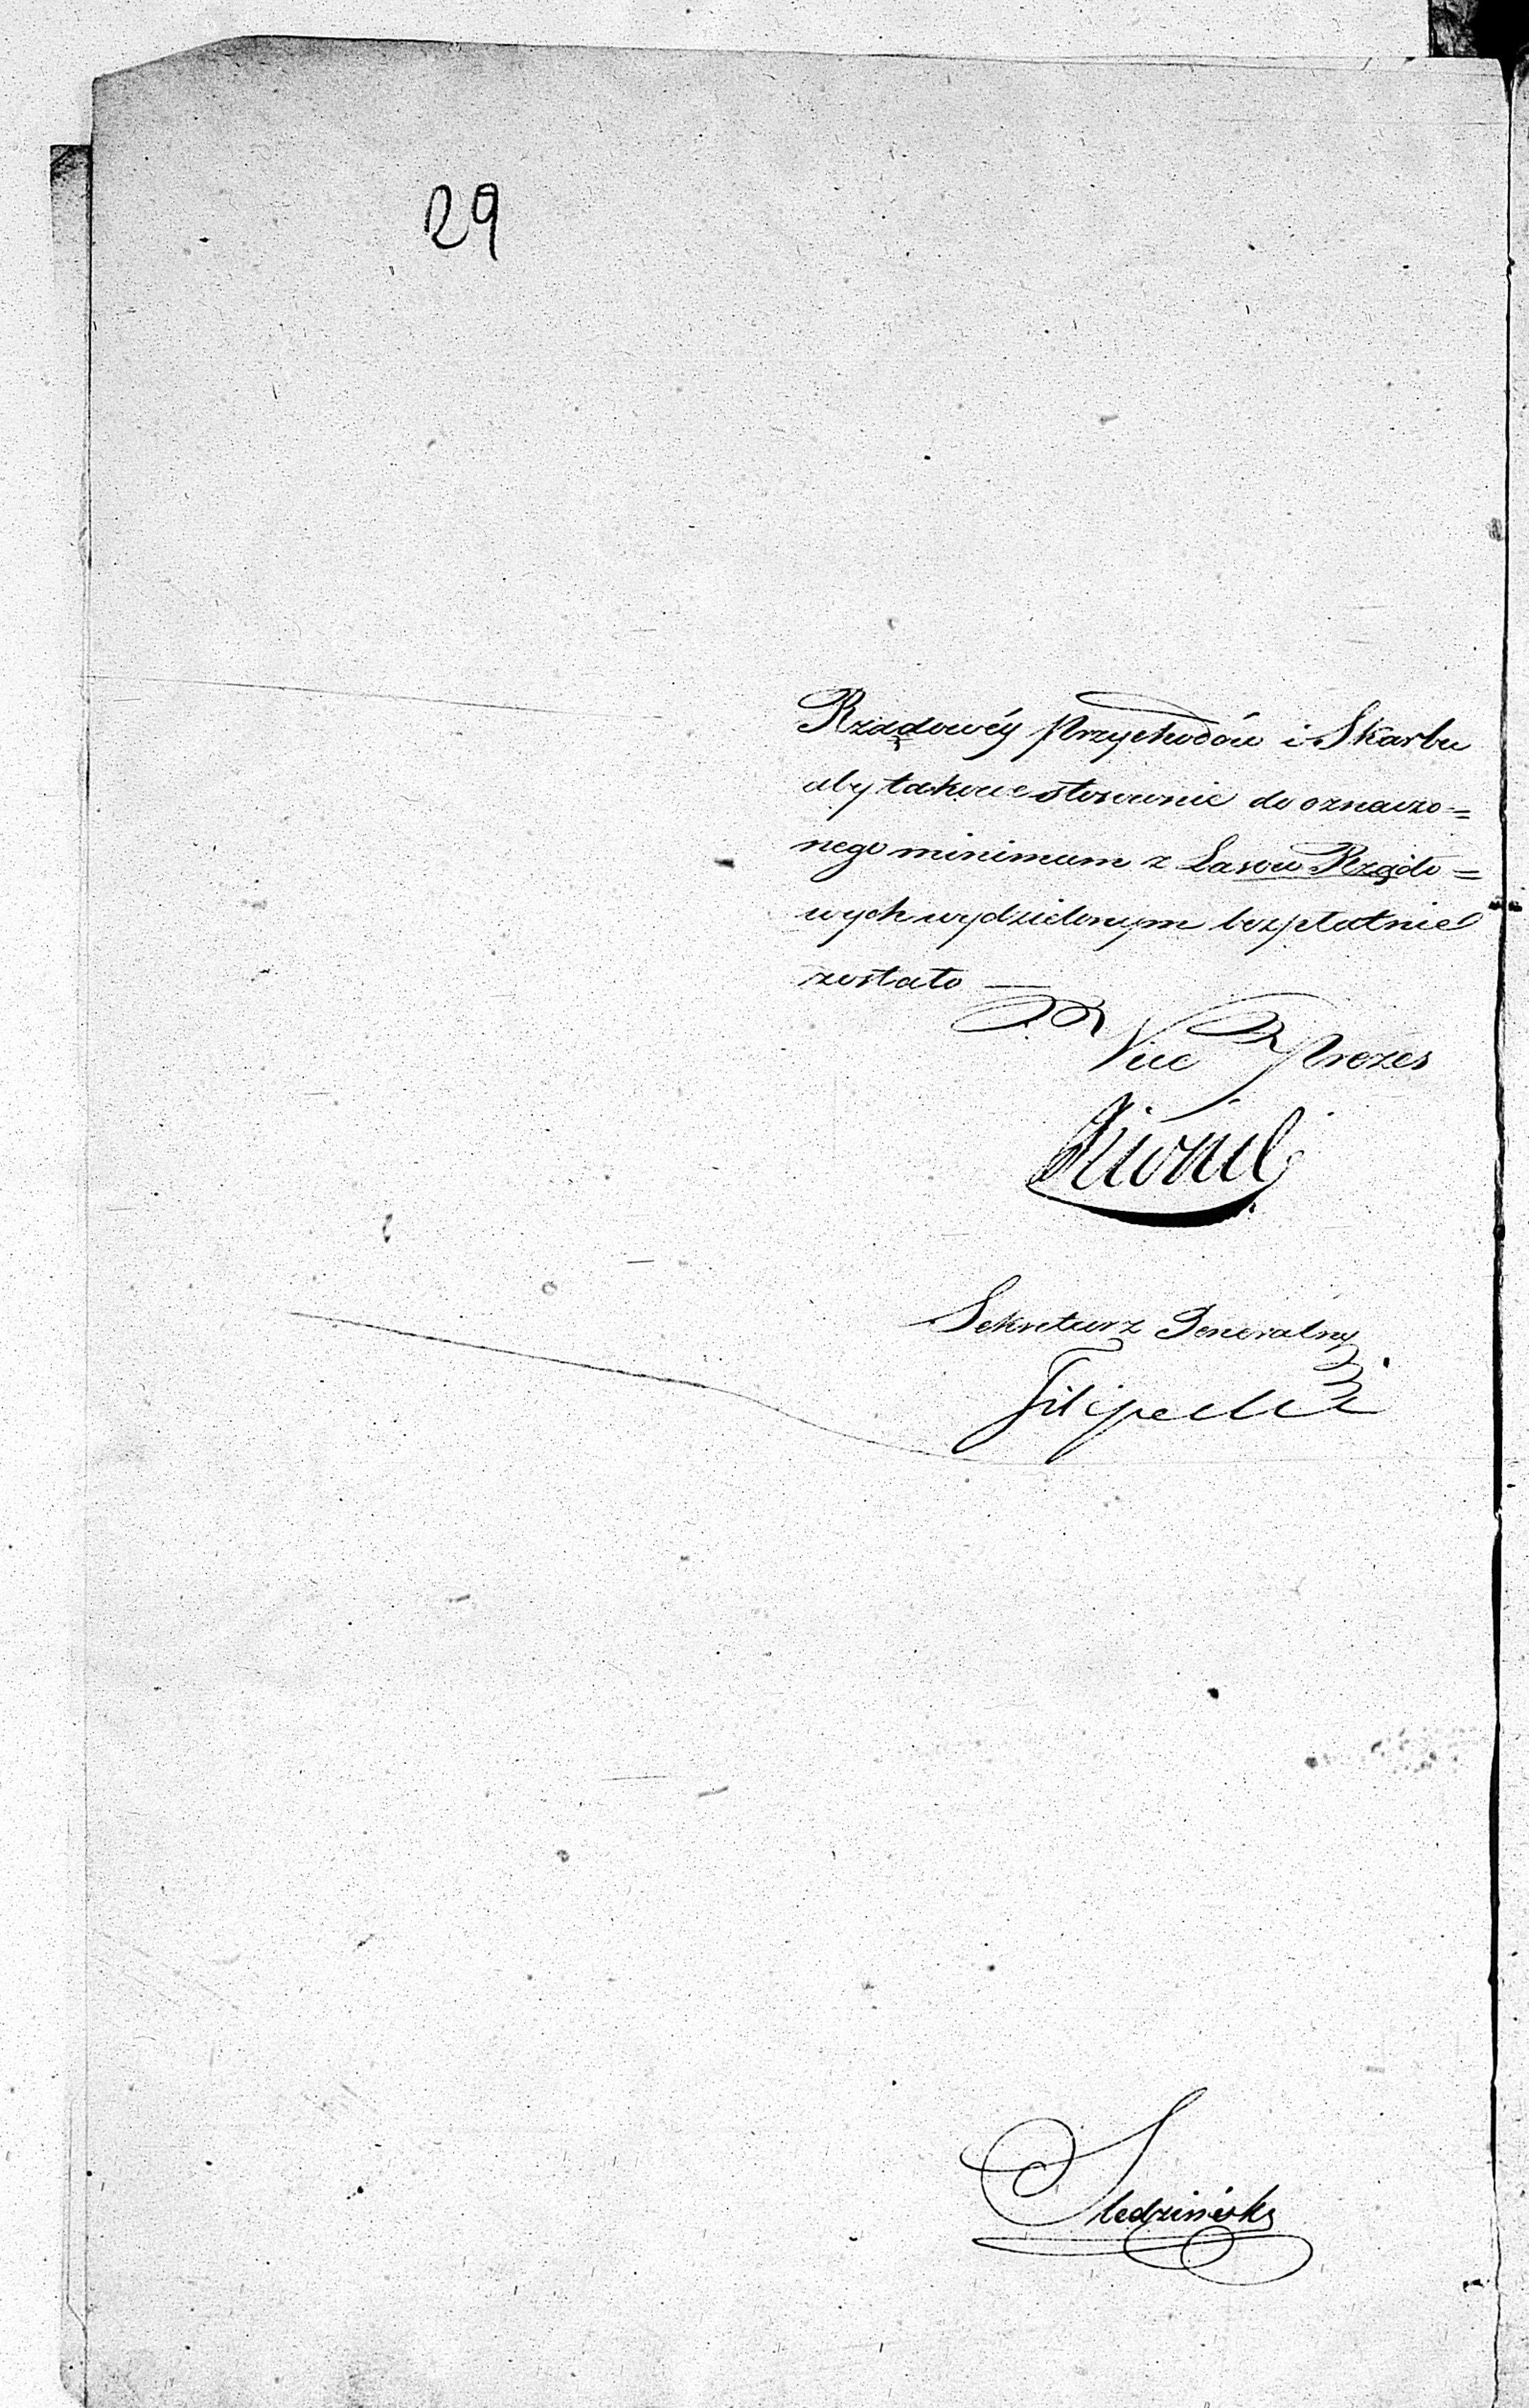 29
Rządowéy Przychodów i Skarbu
aby takowe stosownie do oznaczo=
nego minimum z Lasów Rządo=
wych wydzielonym bezpłatnie
zostało —
Vice Prezes
Sekretarz Generalny
Filipecki
Sledzinski